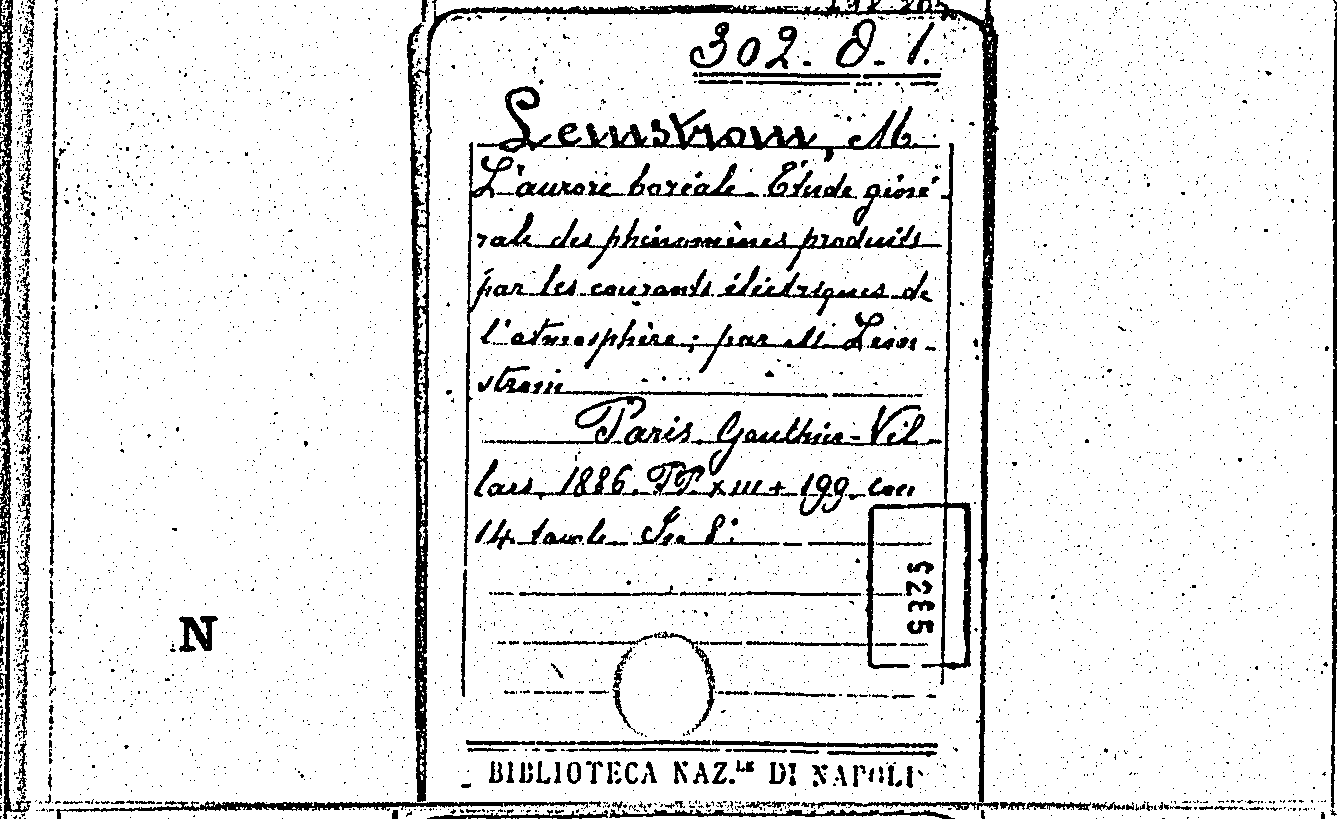 302. D. 1.
Lemstrom, M.
L'aurore boréale. Étude géné-
rale des phénomènes produits
par les courants électriques de
l'atmosphère; par M. Lem-
strom
Paris. Gauthier-Vil-
lars. 1886. PP. XIII + 199. con
14 tavole. In 8°
N
BIBLIOTECA NAZ.LE DI NAPOLI